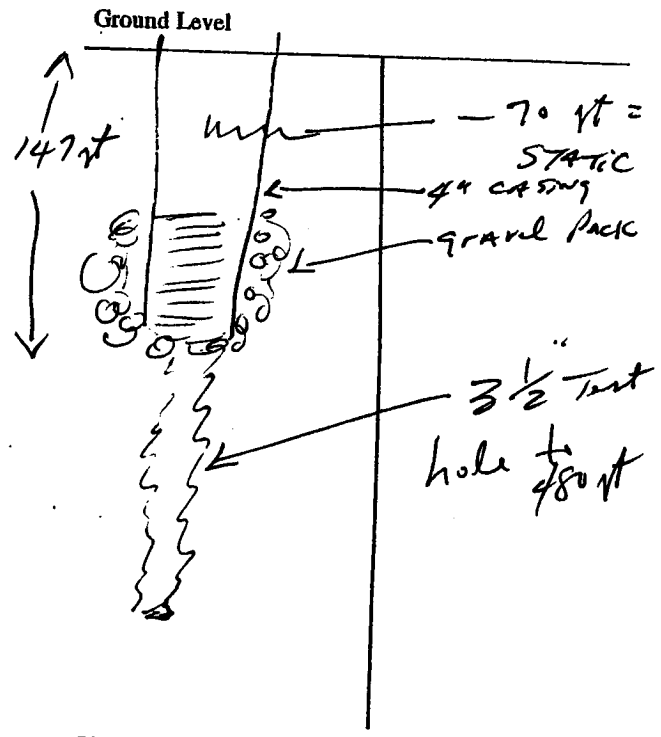 Ground Level
147 ft
— 70 ft =
STATIC
4" CASING
gravel Pack
3 1/2" Test
hole to
480 ft